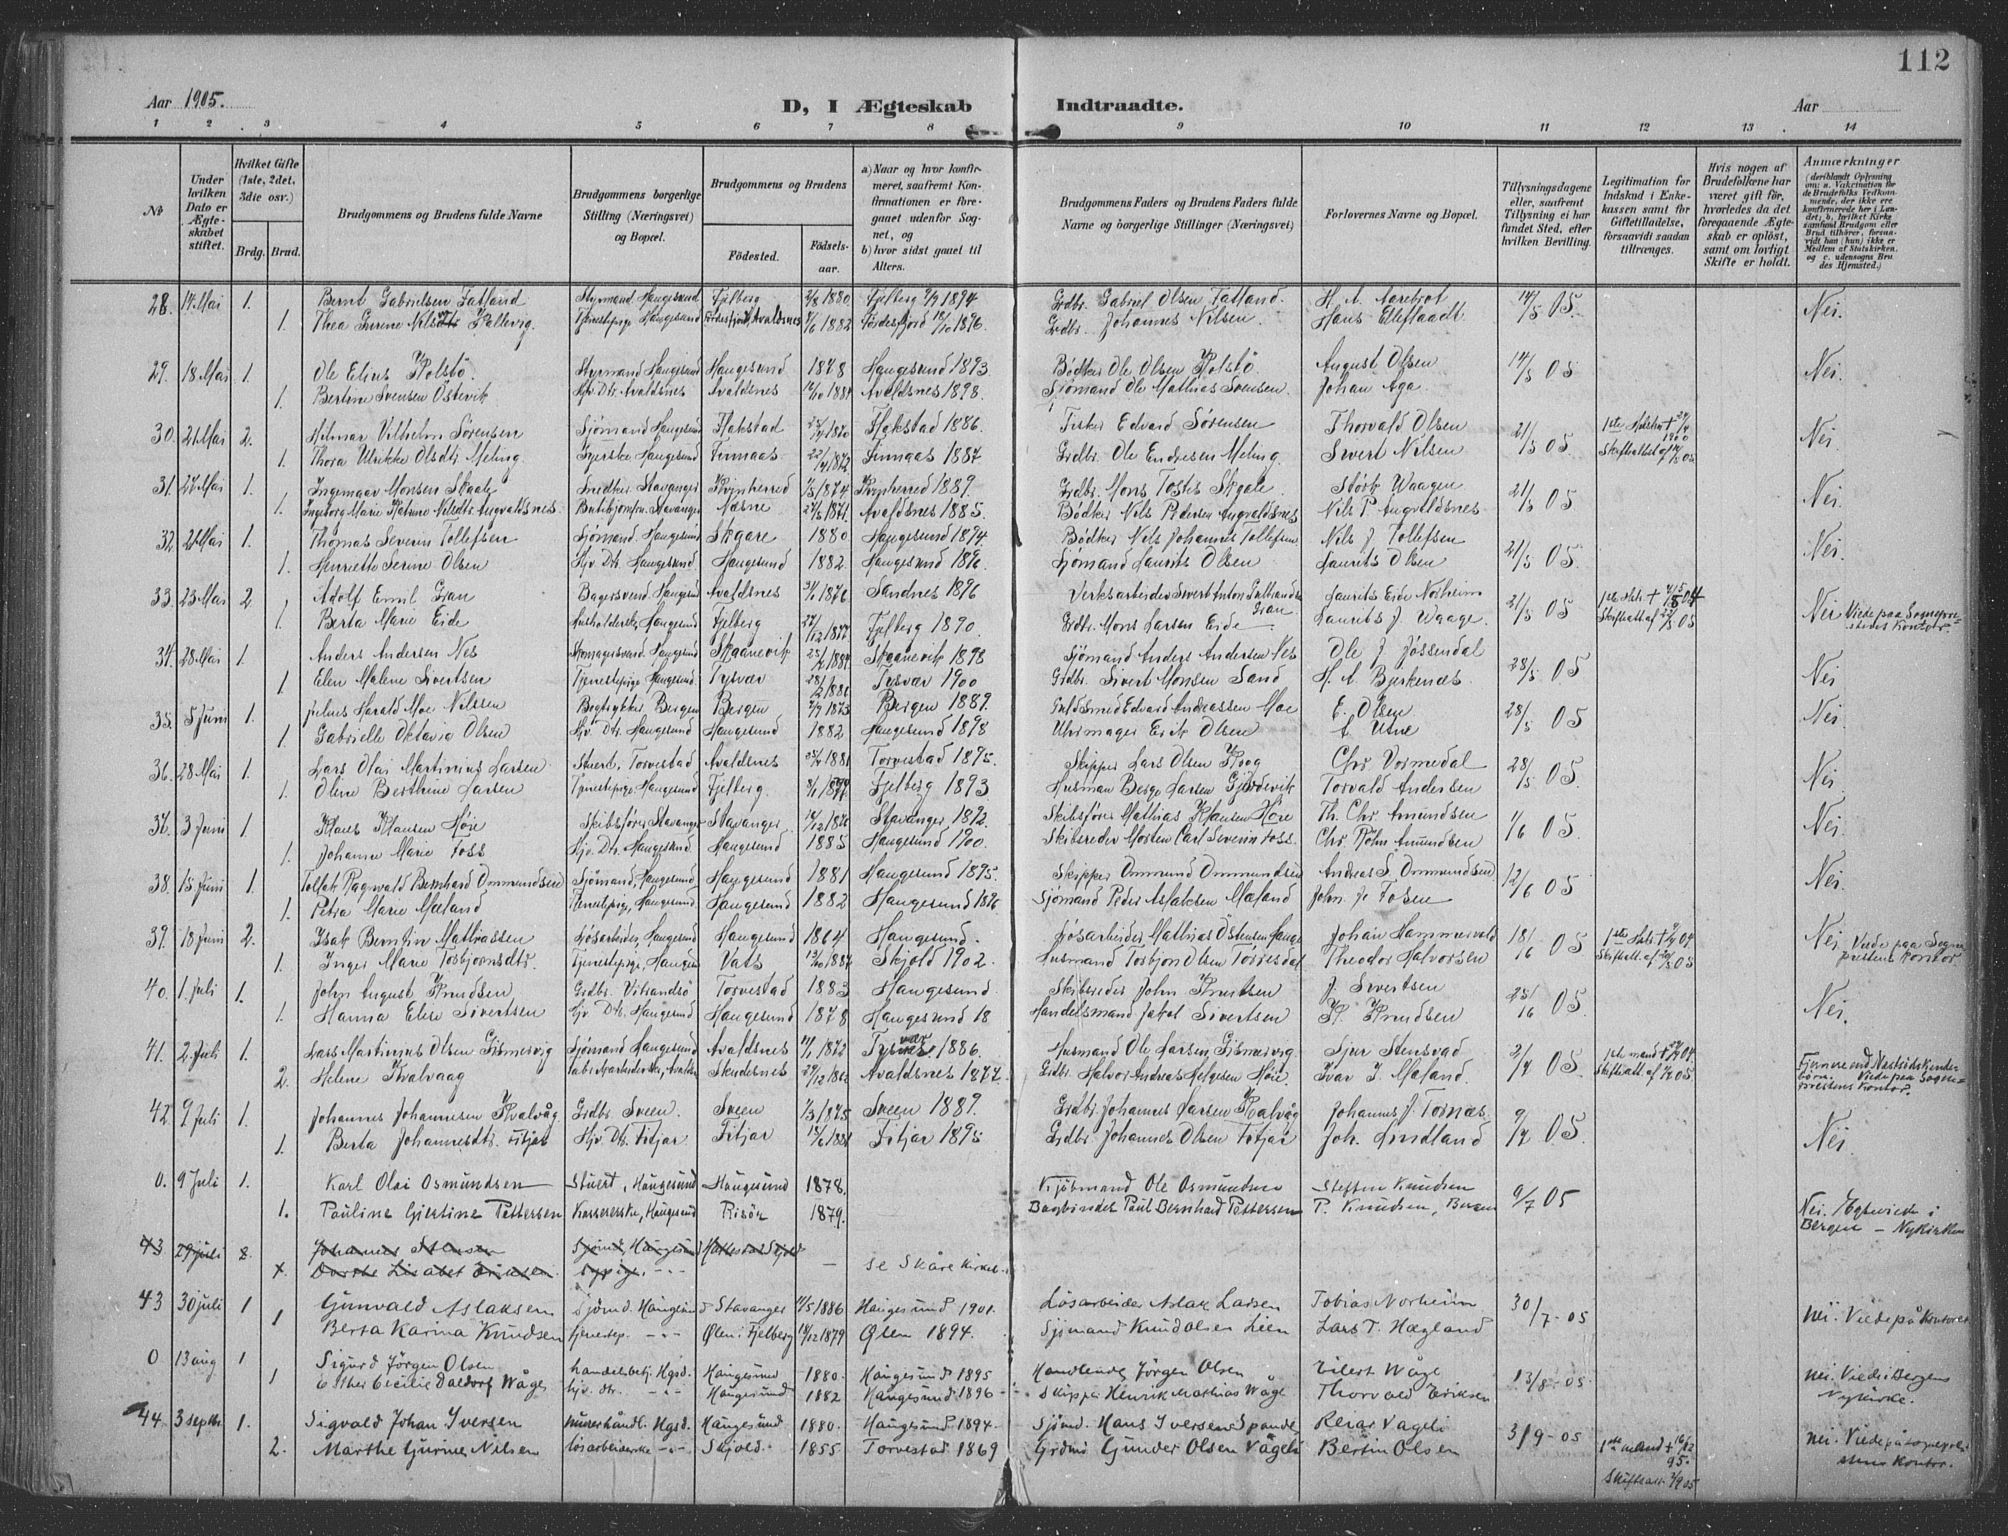 112
Aar 1905.
D, I Ægteskab Indtraadte.
Aar
1 2 3 4 5 6 7 8 9 10 11 12 13 14
No
Under hvilken Dato er Ægteskabet stiftet.
Hvilket Gifte (1ste, 2det, 3die osv.)
Brdg. Brud.
Brudgommens og Brudens fulde Navne
Brudgommens borgerlige Stilling (Næringsvei) og Bopæl.
Brudgommens og Brudens
Fødested. Fødselsaar.
a) Naar og hvor konfirmeret, saafremt Konfirmationen er foregaaet udenfor Sognet, og
b) hvor sidst gaaet til Alters.
Brudgommens Faders og Brudens Faders fulde Navne og borgerlige Stillinger (Næringsvei)
Forlovernes Navne og Bopæl.
Tillysningsdagene eller, saafremt Tillysning ei har fundet Sted, efter hvilken Bevilling.
Legitimation for Indskud i Enkekassen samt for Giftetilladelse, forsaavidt saadan tiltrænges.
Hvis nogen af Brudefolkene har været gift før, hvorledes da det foregaaende Ægteskab er opløst, samt om lovligt Skifte er holdt.
Anmærkninger
28. 14 Mai 1. Bernt Gabrielsen Fatland Styrmand Haugesund Fjelberg 2/8 1880 Fjelberg 1894 Grdbr. Gabriel Olsen Fatland. H. A. Aarebrot 14/5 05. Nei.
1. Thea Gurine Nilsdtr Kallevig. Tjenestepige Haugesund Avaldsnes 1882 Førdesfjord 1896. Grdbr. Johannes Nilsen. Hans Elleflaadt
29. 18 Mai 1. Ole Elius Kolstø. Styrmand Haugesund Haugesund 1878 Haugesund 1893 Bødker Ole Olsen Kolstø August Olsen 14/5 05 Nei.
1. Bertine Svensen Østevik Hjv. Dtr. Avaldsnes Avaldsnes 1881 Avaldsnes 1898. Sjømand Ole Mathias Svensen Johan Aga
30. 21 Mai 2. Hilmar Vilhelm Sørensen Sjømand Haugesund Flakstad 1870 Flakstad 1886. Fisker Edvard Sørensen Thorvald Olsen 21/5 05 Nei
1. Thora Ulrikke Olsdtr Meling. Haugesund Finnaas 1872 Finnaas 1887 Grdbr. Ole Endresen Meling. Sivert Nilsen
31. 27 Mai 1. Ingemar Monsen Skaale Snedker Stavanger Kvinherred 1874 Kvinherred 1889. Grdbr. Mons Tostes Skaale Størk Waagen 21/5 05 Nei.
1. Ingeborg Marie Katrine Nilsdtr Augvaldsnes. Butikjomfru Stavanger Næsne 1871. Avaldsnes 1885. Bødker Nils Pedersen Augvaldsnes Nils P. Augvaldsnes
32. 21 Mai 1. Thomas Severin Tollefsen Sjømand. Haugesund Skaare 1880 Haugesund 1894. Bødker Nils Johannes Tollefsen Nils J. Tollefsen 21/5 05 Nei.
1. Henriette Serine Olsen Hjv. Dtr. Haugesund. Haugesund 1882 Haugesund 1896. Sjømand Laurits Olsen Laurits Olsen
33. 23 Mai 2. Adolf Emil Gran Bagersvend Haugesund Avaldsnes 1876 Sandnes 1896 Verksarbeider Sivert Anton Gran Laurits Eide Norheim 21/5 05 Nei Viede paa Sogneprestens Kontor.
1. Berta Marie Eide Husholderske, Haugesund Fjelberg 1877 Fjelberg 1890. Grdbr. Mons Larsen Eide Laurits J. Waage.
34. 28 Mai 1. Anders Andersen Nes Haugesund Skaanevik 1881 Skaanevik 1898 Sjømand Anders Andersen Nes Ole J. Jøssendal 28/5 05 Nei
1 Elen Malene Sivertsen Tjenestepige Haugesund Tysvær 1881 Tysvær 1900 Grdbr. Sivert Monsen Sand H. A. Bjerkenæs.
35. 5 Juni 1. Julius Harald Moe Nilsen Bogtrykker Bergen Bergen 1873 Bergen 1889. Guldsmed Edvard Andreassen Moe E. Olsen 28/5 05 Nei.
1. Gabrielle Oktavia Olsen Hjv. Dtr. Haugesund Haugesund 1882 Haugesund 1898 Uhrmager Eirik Olsen
36. 28 Mai 1. Lars Olai Martinius Larsen Stuert, Torvestad Avaldsnes 1881 Torvestad 1895. Skipper Lars Olsen Krog Chr. Vormedal 28/5 05 Nei
1. Oline Berthine Larsen Tjenestepige, Haugesund Fjelberg. 1879 Fjelberg 1893 Husmand Berge Larsen Gjerdevik Torvald Andersen
37. 3 Juni 1 Klaus Klausen Høie Skibsfører Stavanger Stavanger 1876 Stavanger 1892. Skibsfører Mathias Klausen Høie Th. Chr. Amundsen 1/6 05. Nei.
1. Johanne Marie Foss Hjv. Dtr. Haugesund Haugesund 1885 Haugesund 1900. Skibsreder Morten Carl Severin Foss. Chr. Røhn Amundsen
38. 15 Juni 1. Tollak Ragnvald Bernhard Ommundsen Sjømand, Haugesund. Haugesund 1881 Haugesund 1895. Skipper Ommund Ommundsen Andreas S. Ommundsen 12/6 05 Nei.
1. Petra Marie Mæland Tjenestepige, Haugesund. Haugesund 1882 Haugesund 1896 Sjømand Peder Aslaksen Mæland John J. Fosen
39. 18 Juni 2. Isak Berntin Mathiassen Løsarbeider, Haugesund Haugesund 1864 Haugesund. Løsarbeider Mathias Østensen Hauge Johan Hammersvold 18/6 05 Nei Viede paa Sogneprestens Kontor.
1. Inger Marie Torbjørnsdtr. Tjenestepige, Haugesund Vats 1887 Skjold 1902. Husmand Torbjørn Olsen Torresdal Theodor Halvorsen
40. 1 Juli 1. John August Knudsen Grdbr. Vibrandsø Torvestad 1883 Haugesund. Skibsreder John Knutsen J. Sivertsen 25/6 05 Nei.
1. Hanna Elise Sivertsen Hjv. Dtr. Haugesund Haugesund 1878 Haugesund 18 Handelsmand Jakob Sivertsen K. Knudsen
41. 2 Juli 1. Lars Martinius Olsen Gismervig Sjømand Haugesund Avaldsnes 1872 Tysvær 1886. Husmand Ole Larsen Gismervig Sjur Stensvad 2/7 05
2. Helene Kvalvaag Avaldsnes Skudesnes 1862 Avaldsnes 1877. Grdbr. Halvor Andreas Helgesen Høie. Ivar I. Mæland Viede paa Sogneprestens Kontor.
42. 9 Juli 1. Johannes Johannesen Kvalvåg Grdbr. Sveen. Sveen 1/3 1875 Sveen 1889. Grdbr. Johannes Larsen Kvalvåg Johannes J. Tornæs. 9/7 05. Nei
1. Berta Johannesdtr. Fitjar Hjv. Dtr. Fitjar Fitjar 1881 Fitjar 1895 Grdbr. Johannes Olsen Fitjar Joh. Lindland
0. 9 Juli 1. Karl Olai Osmundsen Stuert, Haugesund Haugesund 1878. Kjøbmand Ole Osmundsen Steffen Knudsen 9/7 05
1. Pauline Gjertine Pettersen Kassererske, Haugesund Risør 1879. Bogbinder Paul Bernhard Pettersen P. Knudsen, Bergen Nei. Egteviede i Bergen – Nykirken
43 29 juli 2. Johannes Stensen Sjømd, Haugesund
x. Dorthe Lisabet Eriksen Sypige - - – se Skåre Kirkeb.
43 30 juli 1 Gunvald Aslaksen Sjømd. Haugesund Stavanger 1886 Haugesund 1901. Løsarbeider Aslak Larsen Tobias Norheim 30/7-05 nei. Viede på Kontoret
1 Berta Karina Knudsen tjenestep. - - Ølen i Fjelberg 1879 Ølen 1894. Sjømand Knud Olsen Lien Lars T. Hægland
0 13 aug 1 Sigurd Jörgen Olsen handelsbetj. Hgsd. Haugesund 1880. Haugesund 1895 Handlende Jörgen Olsen Eilert Våge 13/8-05 nei. Viede i Bergens Nykirke.
1 Esther Cecilie Daldorf Wåge hjv. dtr. - - Haugesund 1882 Haugesund 1896 Skipper Henrik Mathias Våge Thorvald Eriksen
44. 3 septbr 1. Sigvald Johan Iversen murerhåndl. Hgsd. Haugesund 1880. Haugesund 1894. Sjömd. Hans Iversen Spande Reiar Vågeli 3/9-05
2. Marthe Gurine Nilsen løsarbeiderske - - Skjold. 1855 Torvestad 1869 Grdmd Gunder Olsen Vågeli Bertin Olsen 1ste mand + 16/12 95. Skiftatt. 2/9 05 nei. Viede på sogneprestens Kontor.